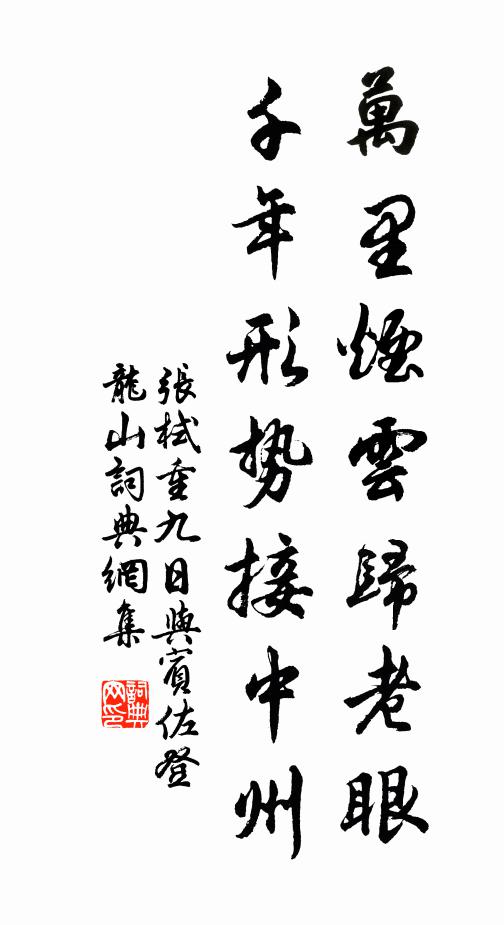 萬里煙雲歸老眼
千年形勢接中州
張栻重九日與賓佐登
龍山詞典網集
詞典
网印